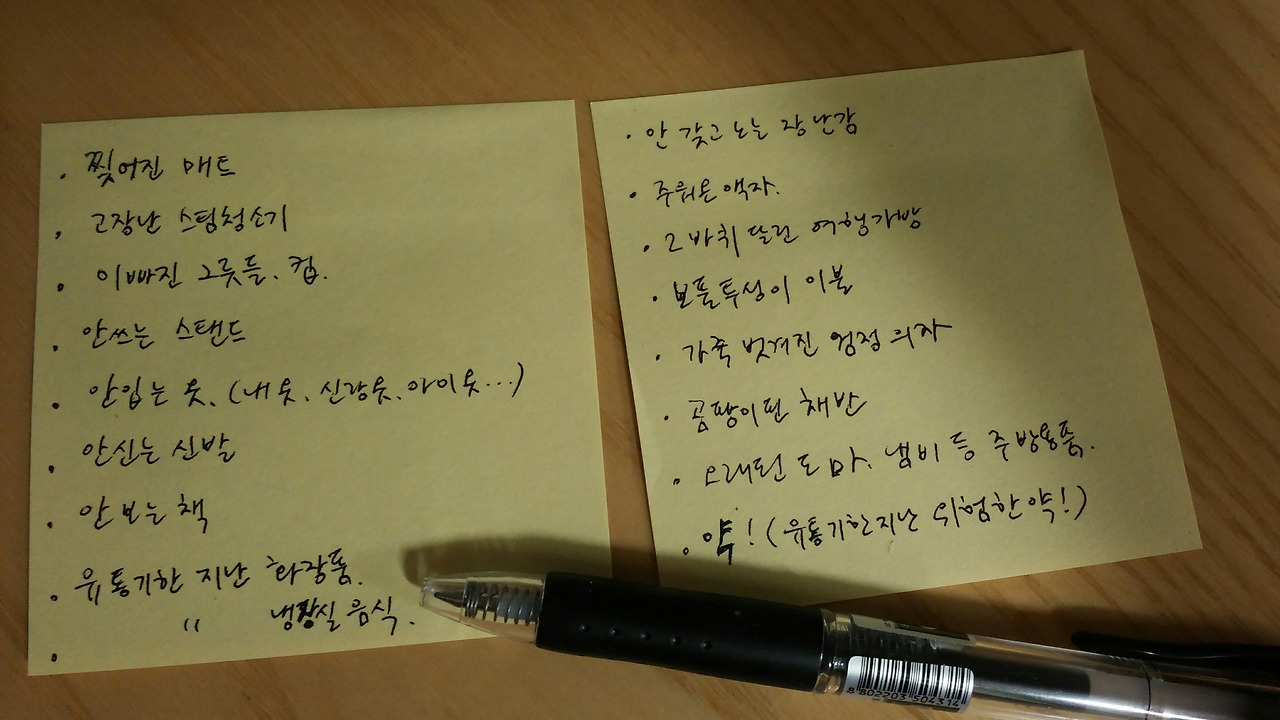 . 찢어진 매트
. 고장난 스팀청소기
. 이빠진 그릇들. 컵.
. 안쓰는 스탠드
. 안입는 옷. (내 옷. 신랑옷. 아이옷...)
. 안신는 신발
. 안 보는 책
. 유통기한 지난 화장품.
〃 냉장실 음식.
.
. 안 갖고 노는 장난감
. 주워온 액자.
. 2바퀴 달린 여행가방
. 보풀투성이 이불
. 가죽 벗겨진 검정 의자
. 곰팡이핀 채반
. 오래된 도마. 냄비 등 주방용품.
. 약! (유통기한지난 위험한약!)
8 802203 504314